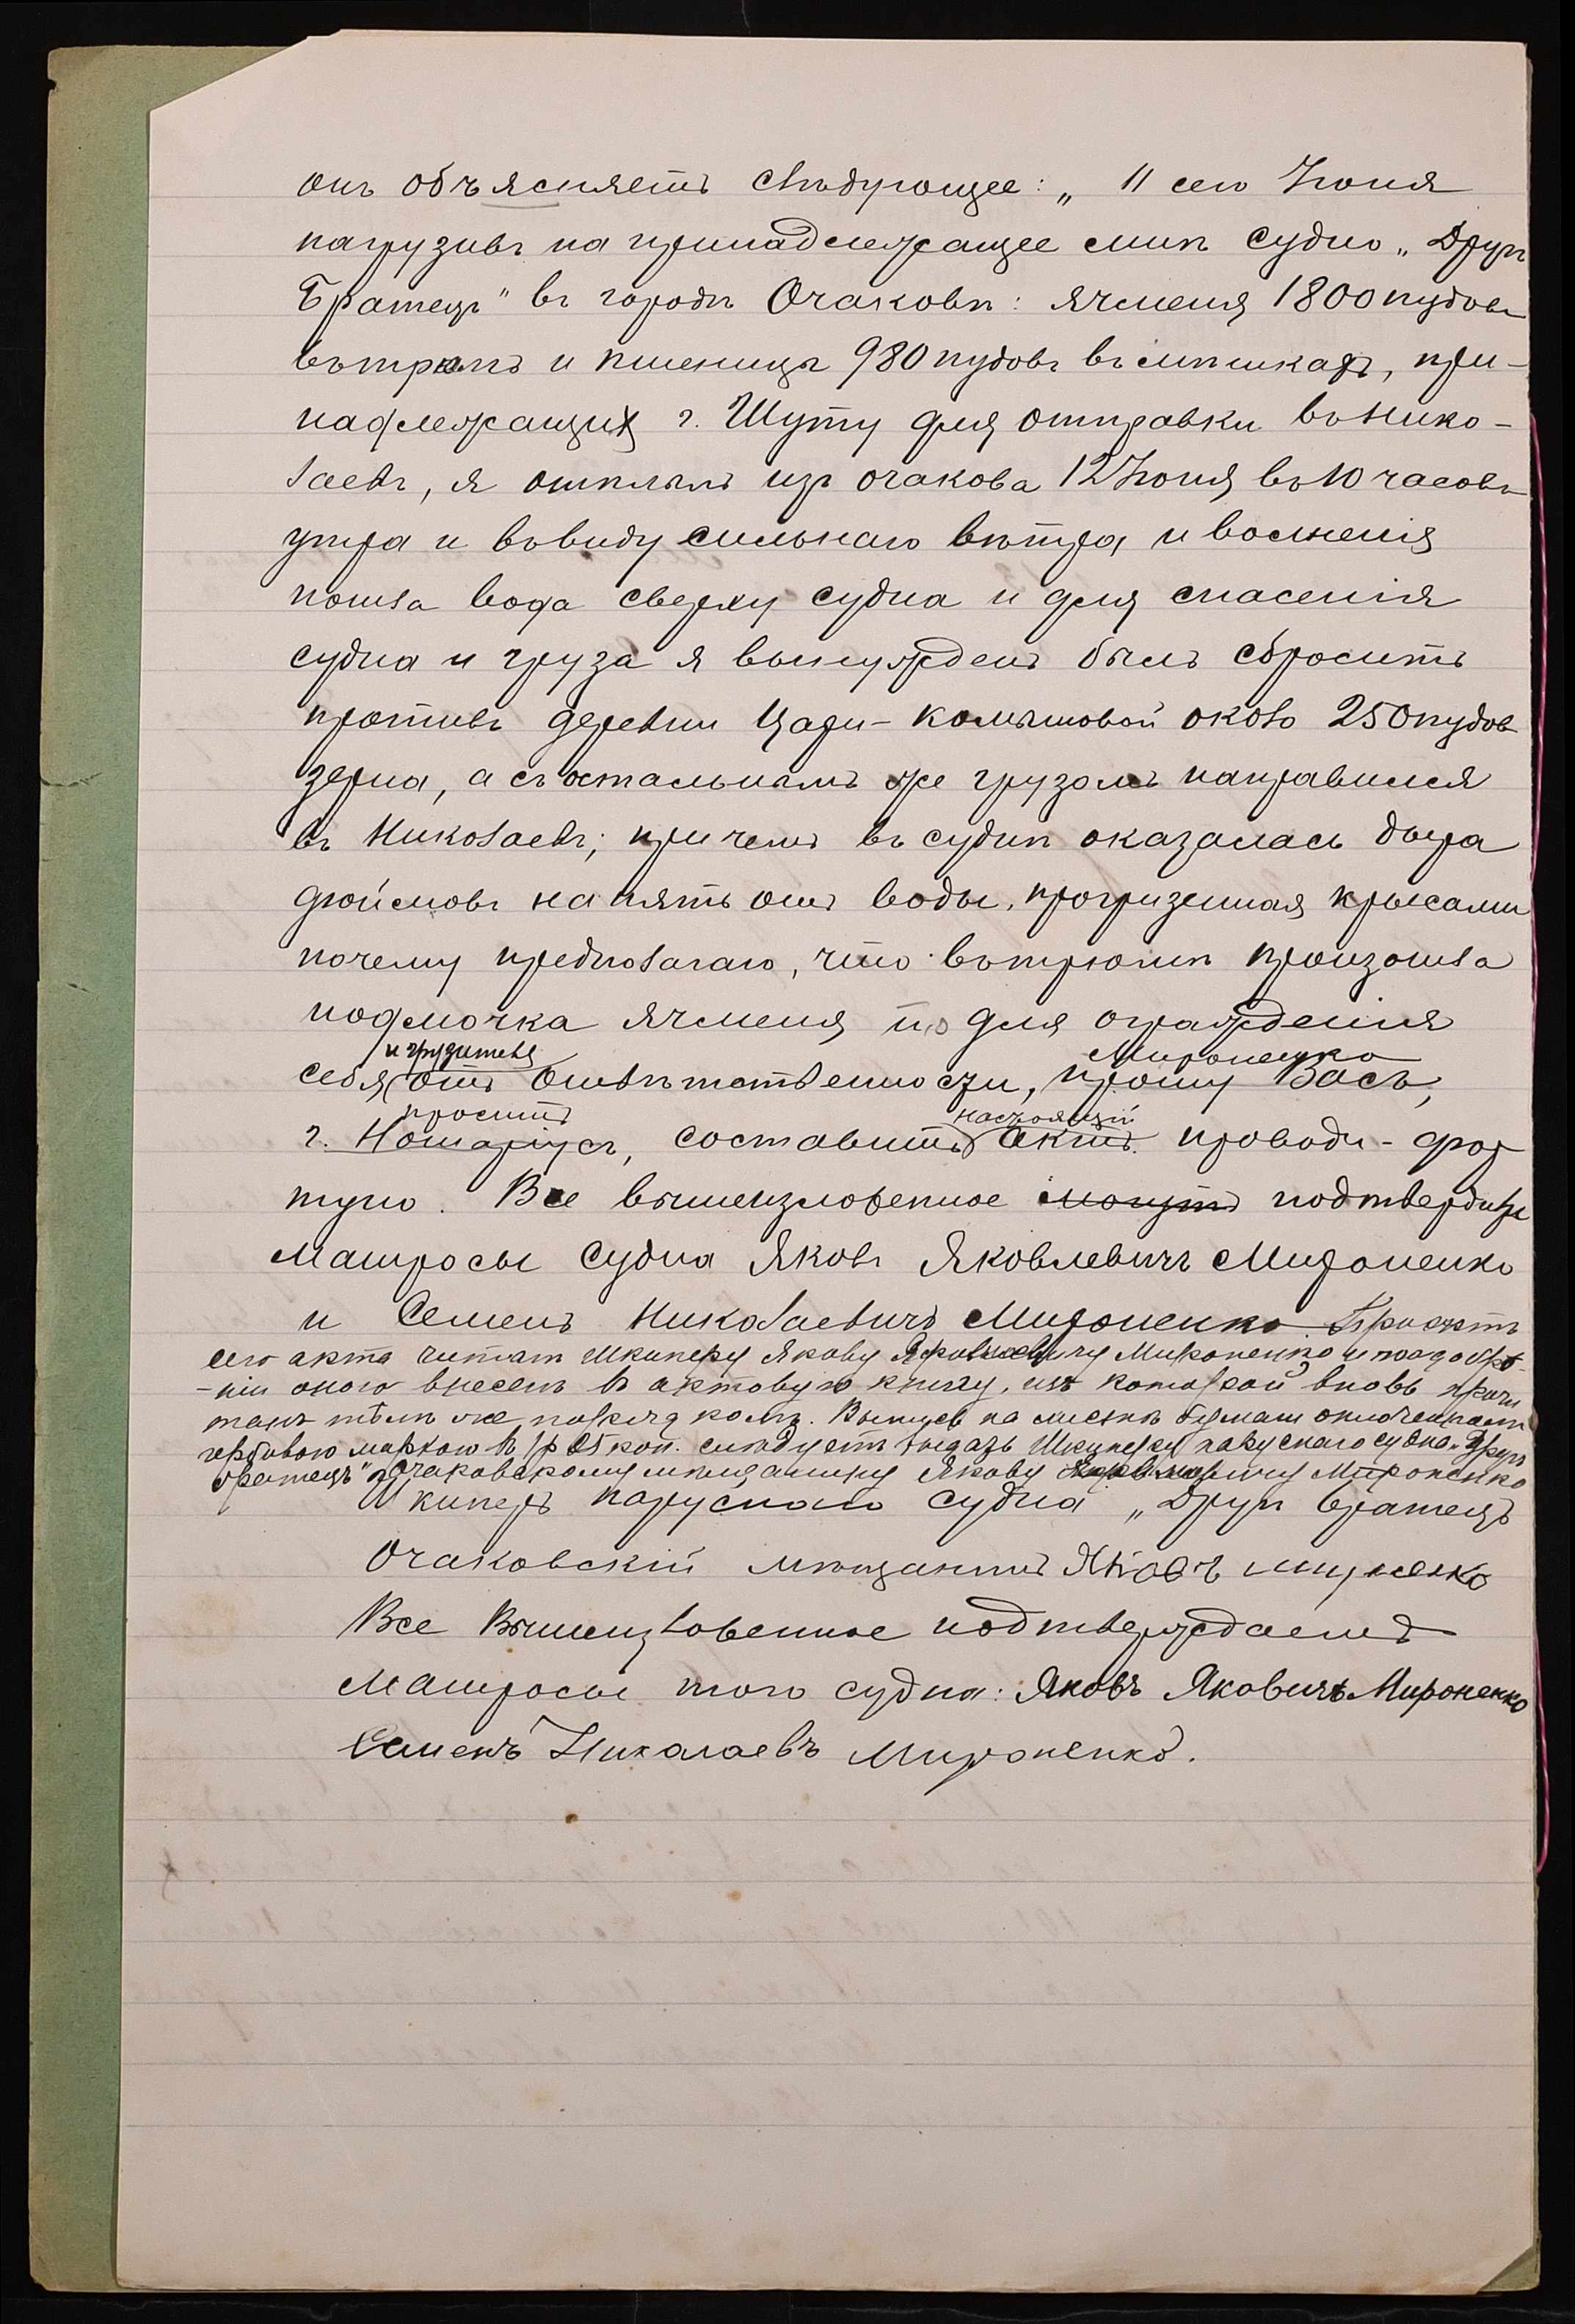 онъ объясняетъ слѣдующее: „11 сего Іюня
нагрузивъ на принадлежащее мнѣ судно „Другъ
Братецъ" въ городѣ Очаковѣ: ячменя 1800 пудовъ
въ трюмъ и пшеницы 980 пудовъ въ мѣшкахъ, при-
надлежащих г. Шуту для отправки въ Нико-
лаевъ, я отплылъ изъ Очакова 12 Іюня въ 10 часовъ
утра и въ виду сильнаго вѣтра и волненія
пошла вода сверху судна и для спасенія
судна и груза я вынужденъ былъ сбросить
противъ деревни Цари-Камышовой около 250 пудов
зерна, а съ остальнымъ же грузомъ направился
въ Николаевъ; причемъ въ суднѣ оказалась дыра
дюймовъ на пять отъ воды, прогризенная крысами
почему предполагаю, что въ трюмѣ произошла
подмочка ячменя для огражденія
Мироненко
себя отъ отвѣтственности, прошу Васъ,
проситъ настоящій
г. Нотаріусъ, составить актъ.
Все вышеизложенное могутъ подтвердить
матросы судна Яковъ Яковлевичъ Мироненко
и Семенъ Николаевичъ Мироненко. Проектъ
сего акта читан шкиперу Якову Мироненко и по одобре-
-ніи оного внесенъ въ актовую книгу, изъ которой вновь прочи
танъ тѣмъ же порядкомъ. Выпись на листѣ бумаги оплоченнаго
гербовою маркою въ 1 р 25 коп. слѣдуетъ выдать Шкиперу паруснаго судна „Другъ
братецъ" Очаковскому мѣщанину Якову Мироненко
Шкиперъ паруснаго судна „Другъ братецъ
Очаковскій мѣщанинъ Яковъ
Все вышеизложенное подтверждаемъ
Матросы того судна: Яковъ Яковичъ Мироненко
Семенъ Никалаевъ Мироненко.